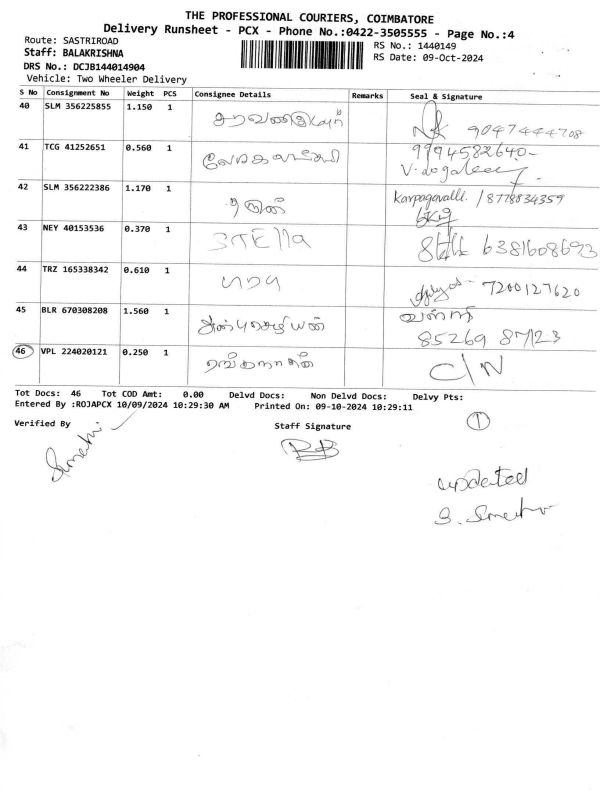 THE PROFESSIONAL COURIERS, COIMBATORE
Delivery Runsheet - PCX - Phone No.:0422-3505555 - Page No.:4
Route: SASTRIROAD
RS No.: 1440149
Staff: BALAKRISHNA
RS Date: 09-Oct-2024
DRS No.: DCJB144014904
Vehicle: Two Wheeler Delivery
S No Consignment No Weight PCS Consignee Details Remarks Seal & Signature
40 SLM 356225855 1.150 1 9047444708
41 TCG 41252651 0.560 1 9994582640-
42 SLM 356222386 1.170 1 Karpagavalli. / 8778834359
43 NEY 40153536 0.370 1 STElla 6381608693
44 TRZ 165338342 0.610 1 7200127620
45 BLR 670308208 1.560 1 அன்புசெழியன்
85269 87123
46 VPL 224020121 0.250 1 ரங்கநாதன் C/N
Tot Docs: 46 Tot COD Amt: 0.00 Delvd Docs: Non Delvd Docs: Delvy Pts:
Entered By :ROJAPCX 10/09/2024 10:29:30 AM Printed On: 09-10-2024 10:29:11
Verified By Staff Signature
updated